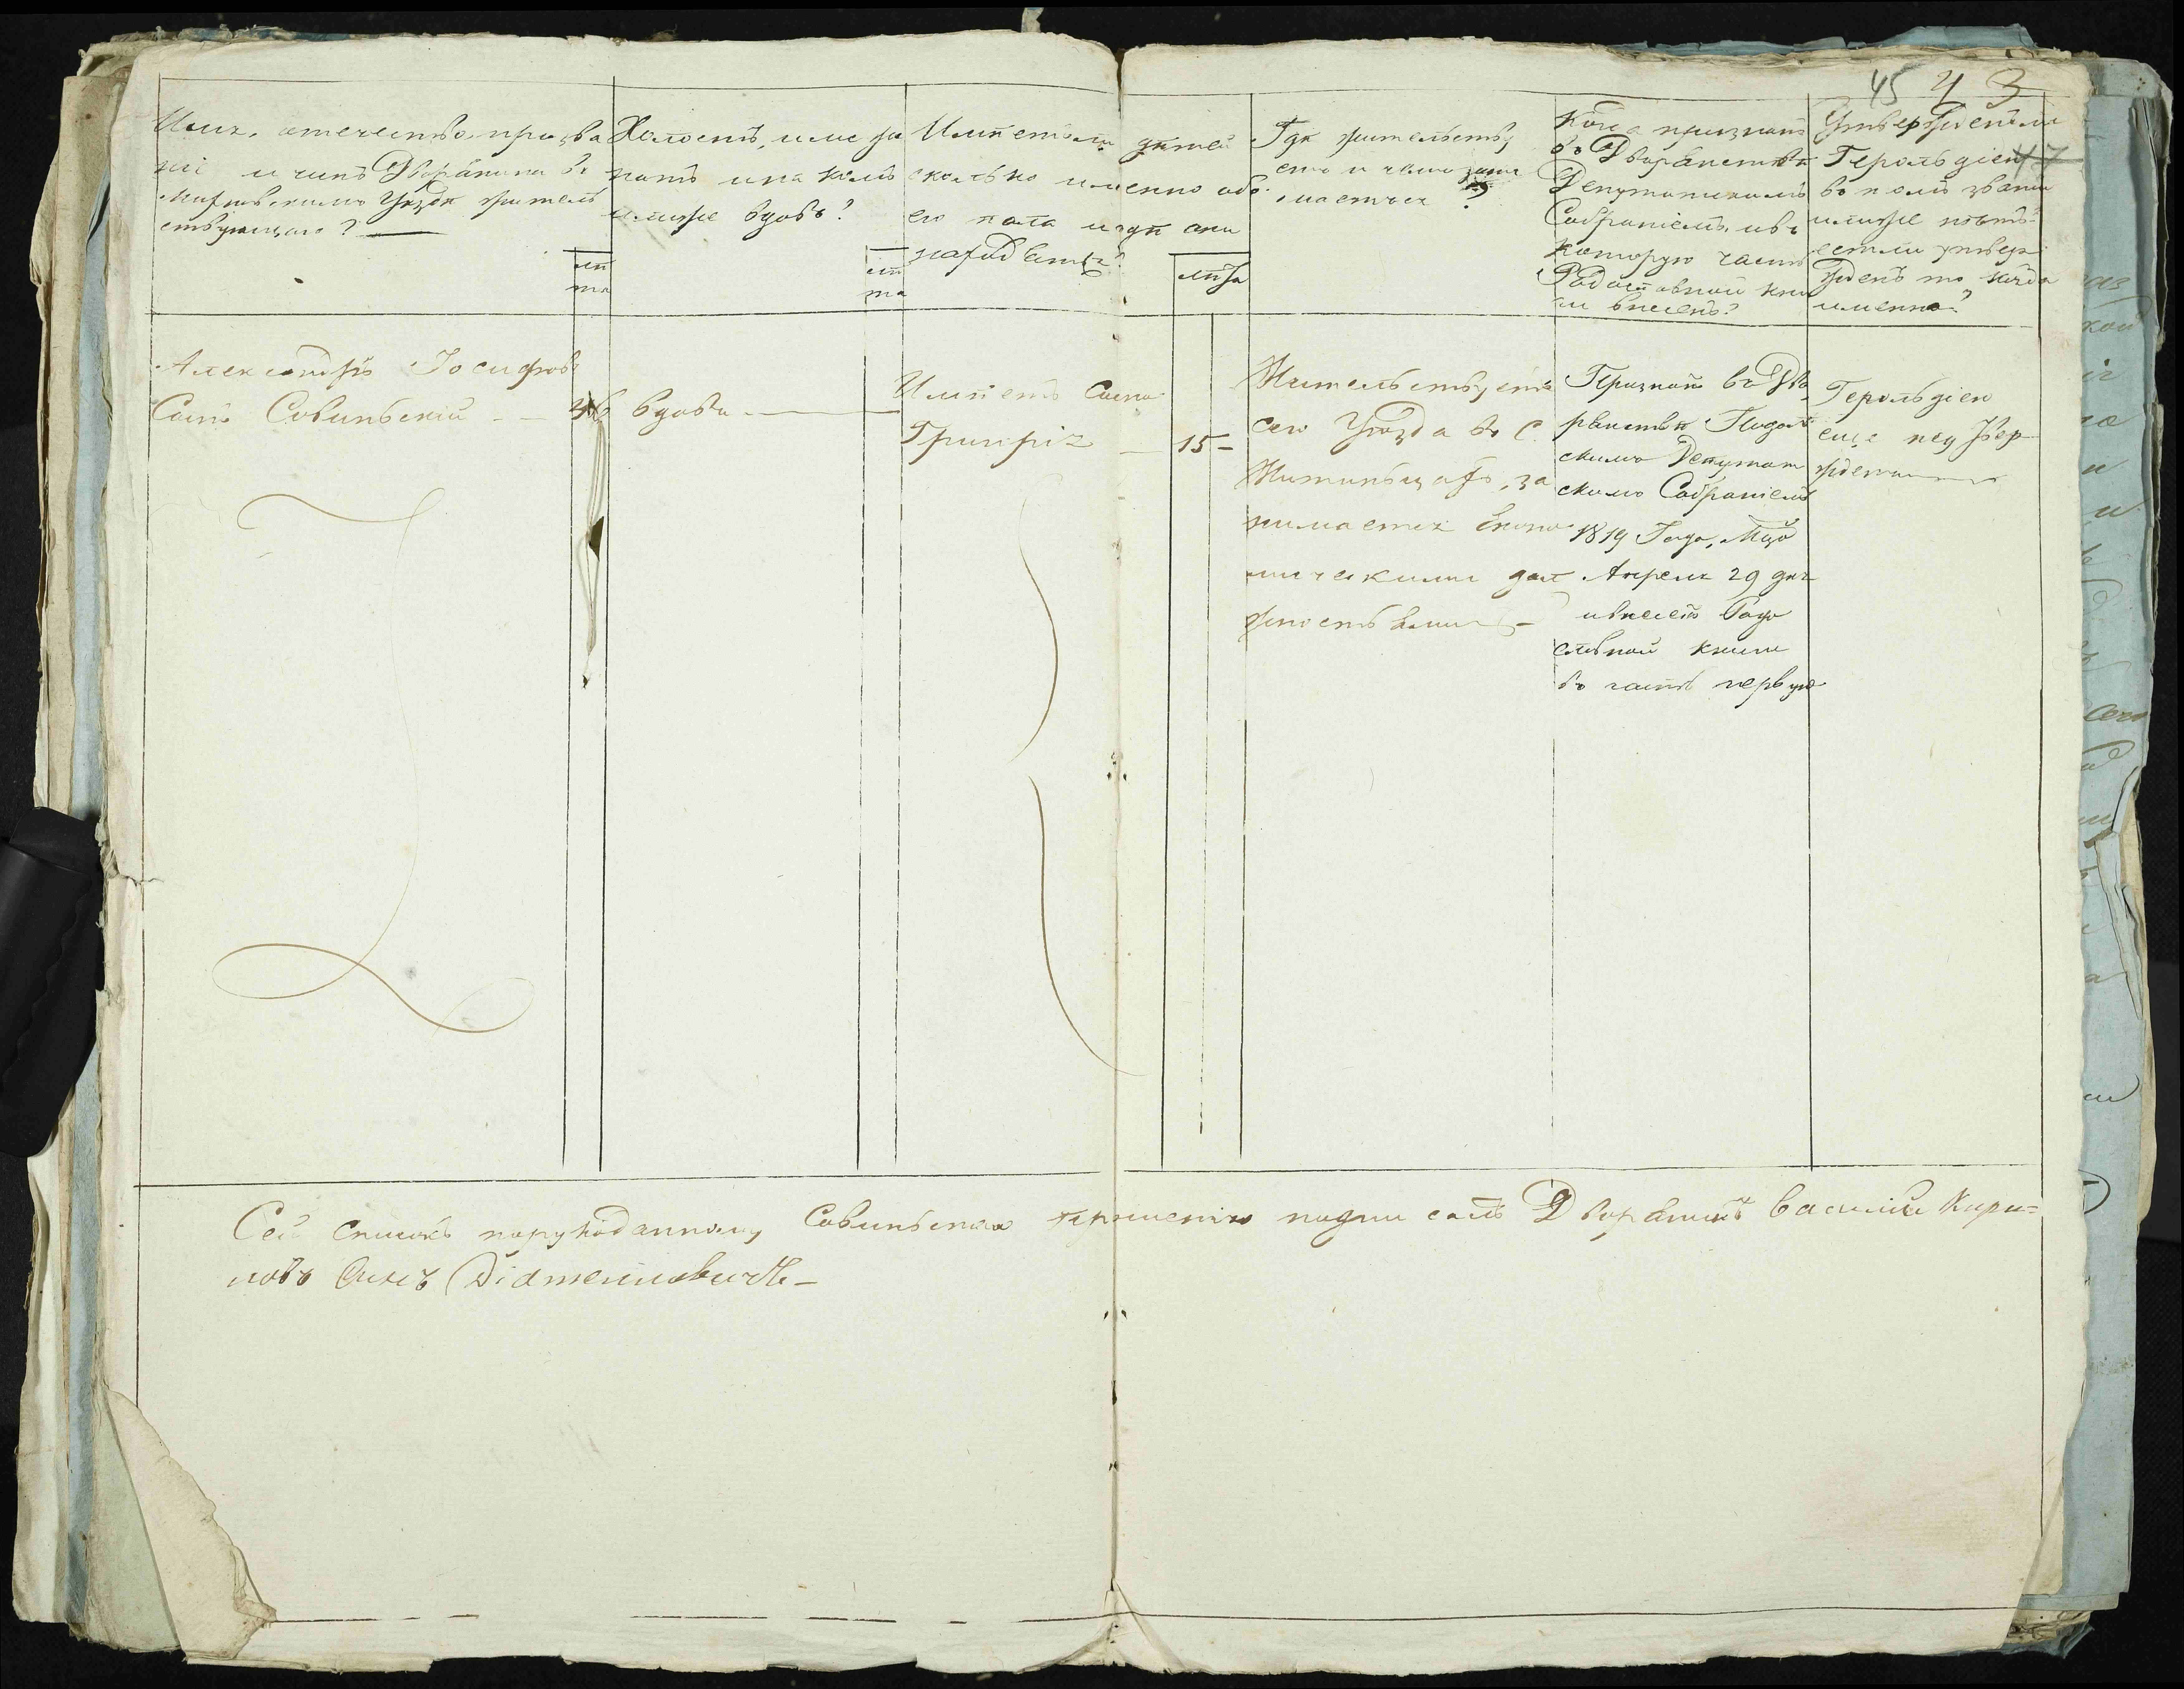 45 43
47
Имя, отечество, прозва
ніе и чинъ Дворянина въ
Уѣздѣ житель
ствующаго?
лѣ
та
Холостъ, или же
натъ и на комъ
или же вдовъ?
лѣ
та
Имѣетъ ли дѣтей
сколько именно обо
его пола и гдѣ они
находятся?
лѣта
Гдѣ жительству
етъ и чемъ зани
мается?
Когда признанъ
въ Дворянствѣ
Депутатскимъ
Собраніемъ, и въ
которую часть
Родословной кни
ги внесенъ?
Утвержденъ ли
Герольдіею
въ комъ званіи
или же нѣтъ?
естли утвер
жденъ то когда
именно?
Александръ Іосифовъ
Сынъ Совинскій — 46
вдовъ —
Имѣетъ Сына
Григорія — 15 —
Жительствуетъ
сего Уѣзда въ С.
Житинцахъ, за
нимается Еконо
мическими дол
жностьями —
Признанъ въ Дво
рянствѣ Подоль
скимъ Депутат
скимъ Собраніемъ
1819 Года, Мцa
Апреля 29 дня
и внесенъ Родо
словной книги
въ часть первую
Герольдіею
еще неутвер
жденъ —
Сей списокъ порукоданному Совинскаго прошенію подписалъ Дворянинъ Василій Кири=
ловъ Сынъ Діятеиловичъ —